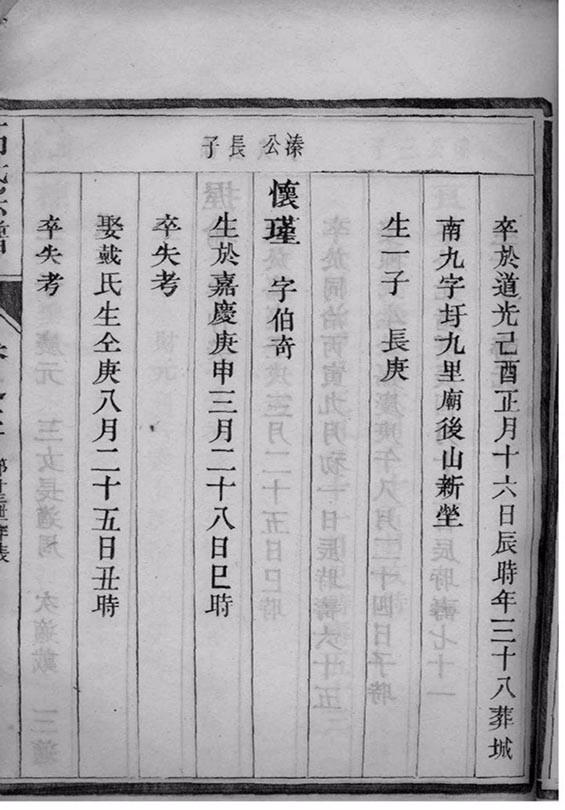 卒於道光己酉正月十六日辰時年三十八葬城
南九字圩九里廟後山新塋
生一子 長庚
溱公長子
懷瑾 字伯奇
生於嘉慶庚申三月二十八日巳時
卒失考
娶戴氏生仝庚八月二十五日丑時
卒失考